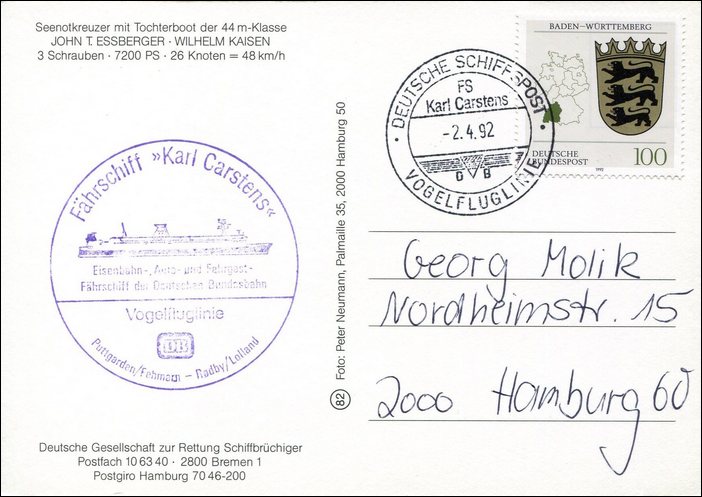 Seenotkreuzer mit Tochterboot der 44 m-Klasse
JOHN T. ESSBERGER · WILHELM KAISEN
3 Schrauben · 7200 PS · 26 Knoten = 48 km/h
Fährschiff »Karl Carstens«
Eisenbahn-, Auto- und Fahrgast-
Fährschiff der Deutschen Bundesbahn
Vogelfluglinie
DB
Puttgarden/Fehmarn – Rødby/Lolland
Deutsche Gesellschaft zur Rettung Schiffbrüchiger
Postfach 10 63 40 · 2800 Bremen 1
Postgiro Hamburg 70 46-200
82 Foto: Peter Neumann, Palmaille 35, 2000 Hamburg 50
DEUTSCHE SCHIFFSPOST
FS
Karl Carstens
-2.4.92
D B
VOGELFLUGLINIE
BADEN-WÜRTTEMBERG
DEUTSCHE
BUNDESPOST
100
1992
Georg Molik
Nordheimstr. 15
2000 Hamburg 60